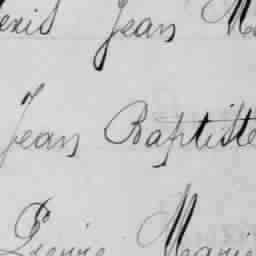 Jean
Jean Baptiste
Pierre Marie